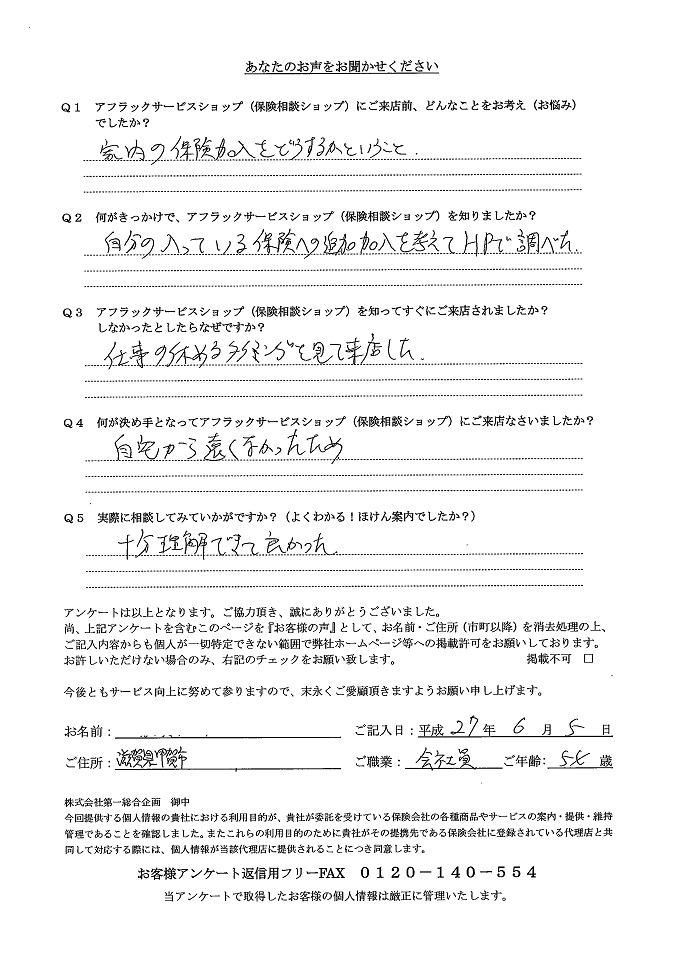 あなたのお声をお聞かせください
Q1 アフラックサービスショップ(保険相談ショップ)にご来店前、どんなことをお考え(お悩み)
でしたか?
家内の保険加入をどうするかということ.
Q2 何がきっかけで、アフラックサービスショップ(保険相談ショップ)を知りましたか?
自分の入っている保険への追加加入を考えてHPで調べた.
Q3 アフラックサービスショップ(保険相談ショップ)を知ってすぐにご来店されましたか?
しなかったとしたらなぜですか?
仕事の休めるタイミングを見て来店した.
Q4 何が決め手となってアフラックサービスショップ(保険相談ショップ)にご来店なさいましたか?
自宅から遠くなかったため
Q5 実際に相談してみていかがですか?(よくわかる!ほけん案内でしたか?)
十分理解できて良かった.
アンケートは以上となります。ご協力頂き、誠にありがとうございました。
尚、上記アンケートを含むこのページを『お客様の声』として、お名前・ご住所(市町以降)を消去処理の上、
ご記入内容からも個人が一切特定できない範囲で弊社ホームページ等への掲載許可をお願いしております。
お許しいただけない場合のみ、右記のチェックをお願い致します。 掲載不可 □
今後ともサービス向上に努めて参りますので、末永くご愛顧頂きますようお願い申し上げます。
お名前: ご記入日:平成 27 年 6 月 5 日
ご住所:滋賀県甲賀市 ご職業:会社員 ご年齢: 歳
株式会社第一総合企画 御中
今回提供する個人情報の貴社における利用目的が、貴社が委託を受けている保険会社の各種商品やサービスの案内・提供・維持
管理であることを確認しました。またこれらの利用目的のために貴社がその提携先である保険会社に登録されている代理店と共
同して対応する際には、個人情報が当該代理店に提供されることにつき同意します。
お客様アンケート返信用フリーFAX 0120-140-554
当アンケートで取得したお客様の個人情報は厳正に管理いたします。